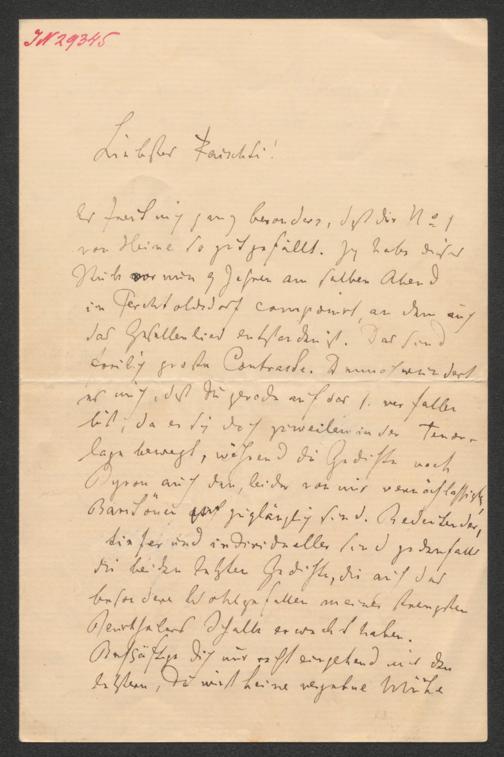 IN 29345
Liebster Kauschti!
Es freut mich ganz besonders, daß dir No 1
von Heine so gut gefällt. Ich habe dieses
Stück vor nun 9 Jahren am selben Abend
in Perchtoldsdorf componirt, an dem auch
das Gesellenlied entstanden ist. Das sind
freilich große Contraste. Dennoch wundert
es mich, daß du gerade auf das 1. verfallen
bist, da es sich doch zuweilen in der Tenor-
lage bewegt, während die Gedichte nach
Byron auch den, leider von mir vernachlässigten
Baritönen zugänglich sind. Bedeutender,
tiefer und individueller sind jedenfalls
die beiden letzten Gedichte, die auch das
besondere Wohlgefallen meines strengsten
Beurtheilers Schalk erweckt haben.
Beschäftige dich nur recht eingehend mit den
letztern, Du wirst keine vergebne Mühe